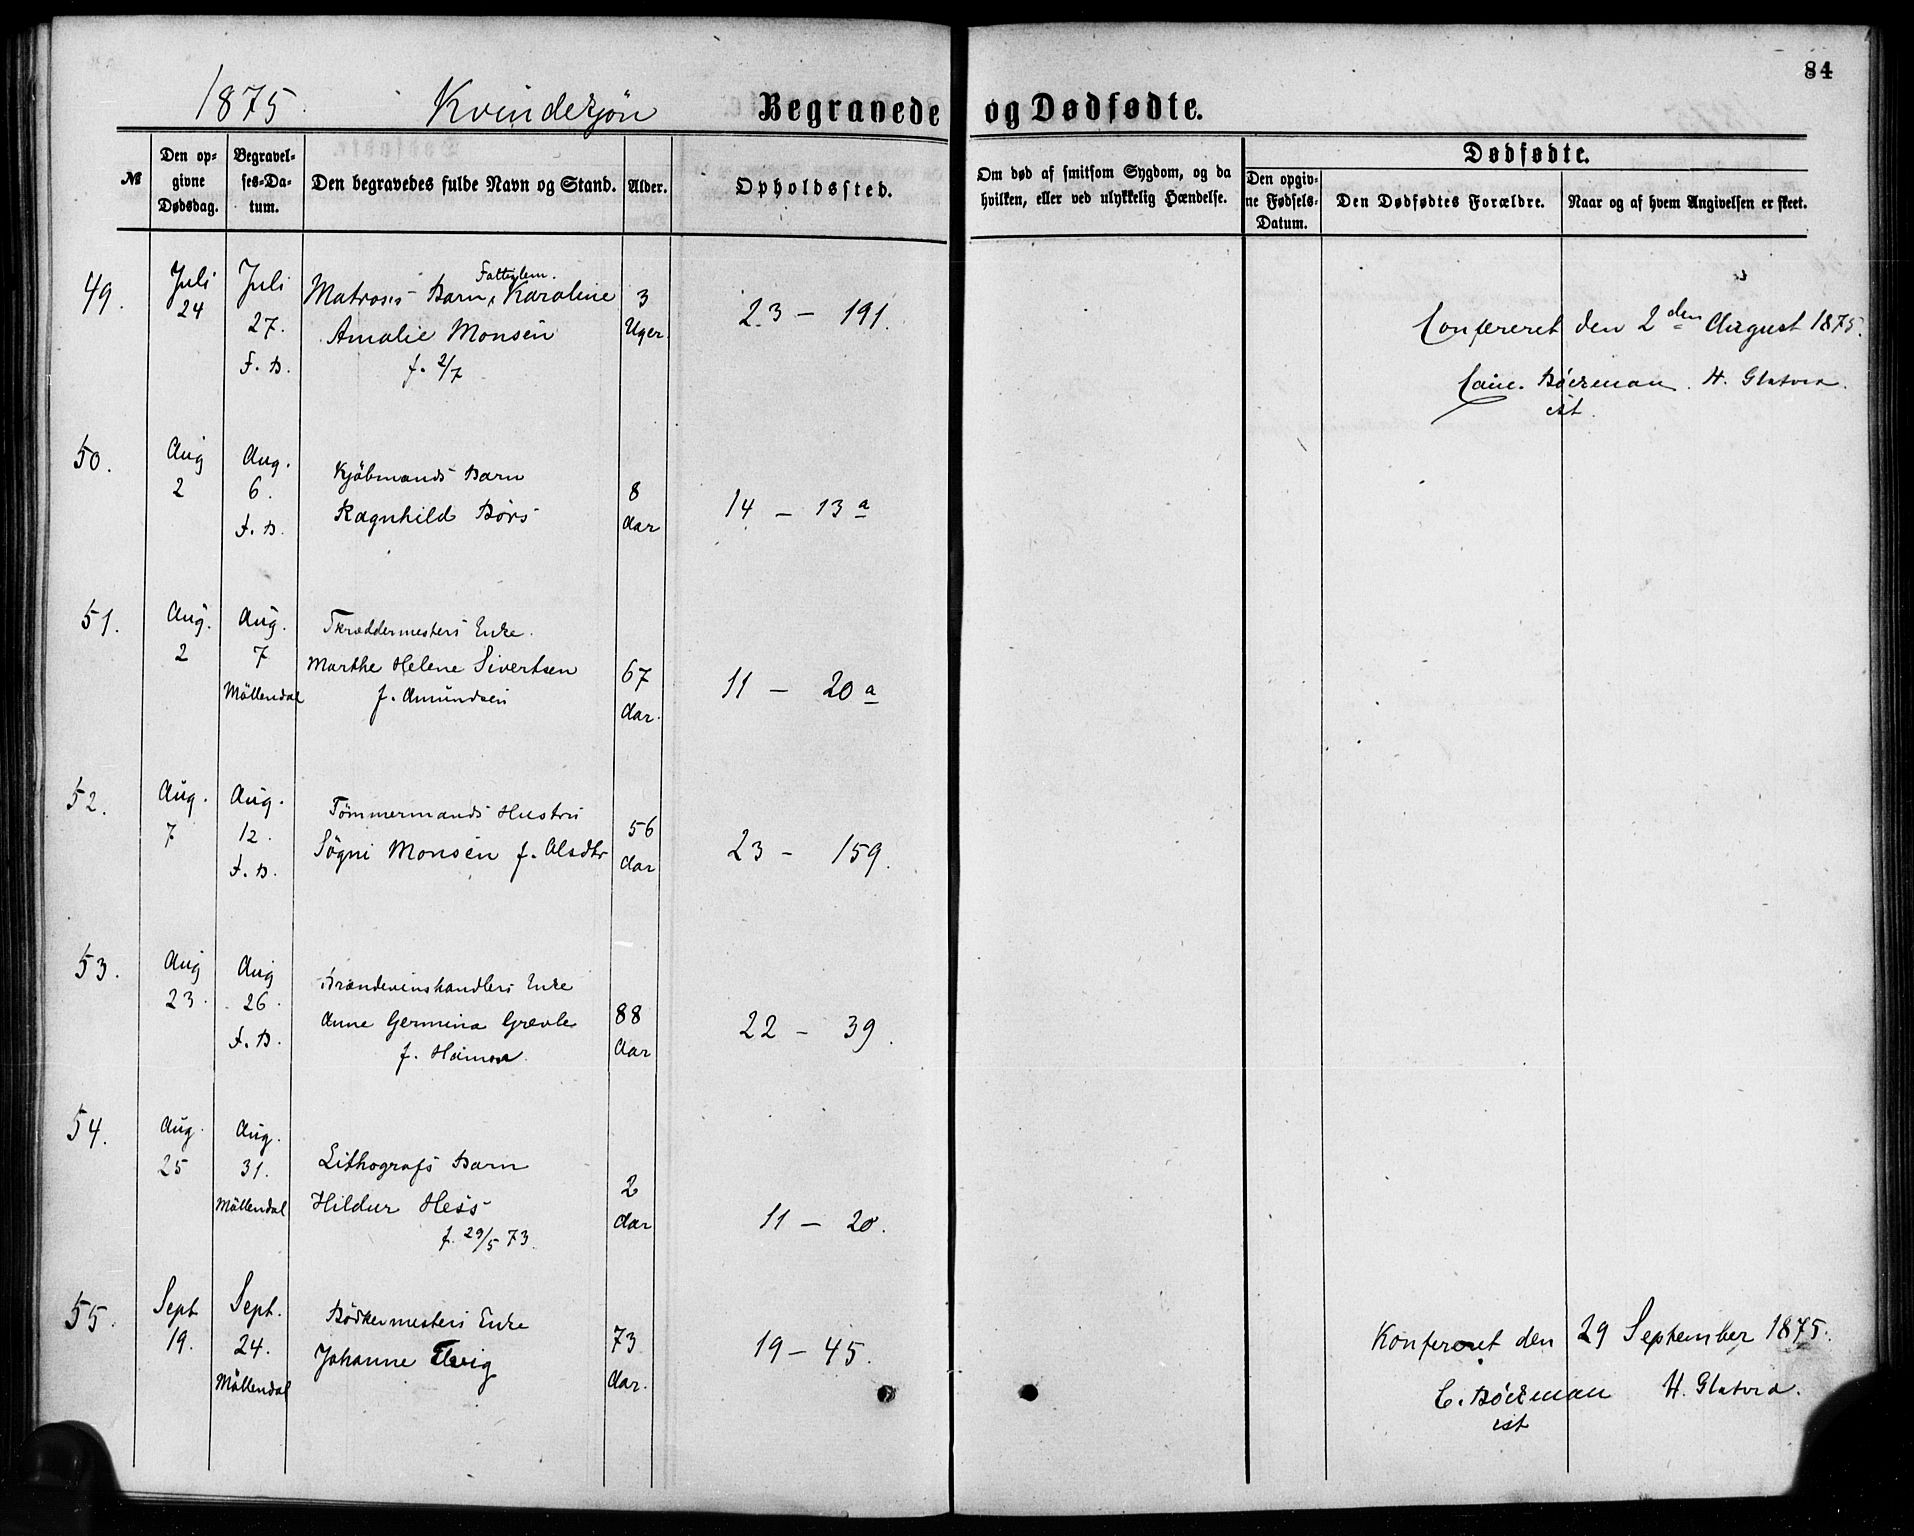 84
1875. Kvindekjøn Begravede og Dødfødte.
№
Den opgivne Dødsdag.
Begravelses-Datum.
Den begravedes fulde Navn og Stand.
Alder.
Opholdssted.
Om død af smitsom Sygdom, og da hvilken, eller ved ulykkelig Hændelse.
Dødfødte.
Den opgivne Fødsels-Datum.
Den Dødfødtes Forældre.
Naar og af hvem Angivelsen er skeet.
49. Juli 24 Juli 27. F. B.
Fattiglem.
Matroses Barn, Karoline
Amalie Monsen
f. 2/7
3 Uger.
23 – 191.
Confereret den 2den August 1875.
Bøckman H. Glatved.
cst.
50. Aug 2 Aug. 6. F. B.
Kjøbmands Barn
Ragnhild Børs
8 Aar
14 – 13a
51. Aug. 2 Aug. 7 Möllendal
Skræddermesters Enke.
Marthe Helene Sivertsen
f. Amundsen
67 Aar.
11 – 20a
52. Aug. 7 Aug. 12. F. B.
Tømmermands Hustru
Søgni Monsen f. Olsdtr
56 Aar
23 – 159.
53. Aug 23. Aug 26. F. B.
Brændevinshandlers Enke
Anne Germina Grevle
f.
88 Aar
22 – 39.
54. Aug. 25 Aug. 31. Möllendal
Lithografs Barn
Hildur Hess
f. 29/5 73.
2 Aar
11 – 20.
55. Sept 19. Sept. 24. Möllendal
Bødkermesters Enke
Johanne
73 Aar.
19 – 45.
Konfereret den 29 September 1875.
C. Bøckman H. Glatved.
cst